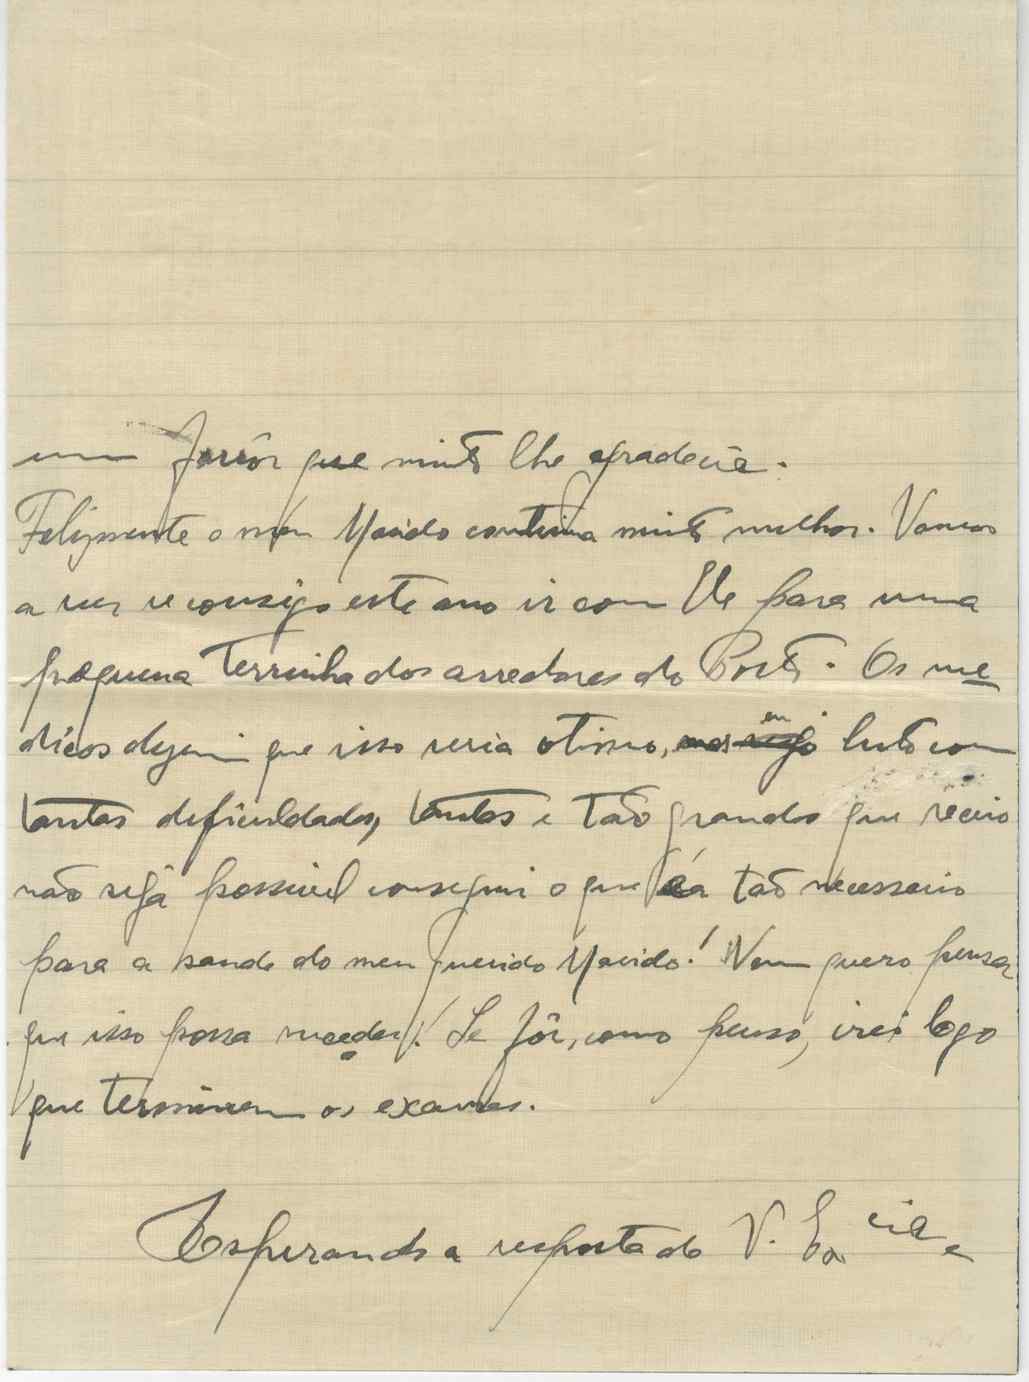 um favôr que muito lhe agradecia.
Felizmente o meu Marido continua muito melhor. Vamos
a ver se consigo este ano ir com Ele para uma
pequena terrinha dos arredores do Porto. Os me
dicos dizem que isso seria otimo, eu luto com
tantas deficuldades, tantas e tão grandes que receio
não sejá possivel conseguir o que é tão necessario
para a saude do meu querido Marido! Nem quero pensar
que isso possa suceder! Se fôr, como penso, irei logo
que terminem os exames.
Esperando a resposta de V. Ex.cia e